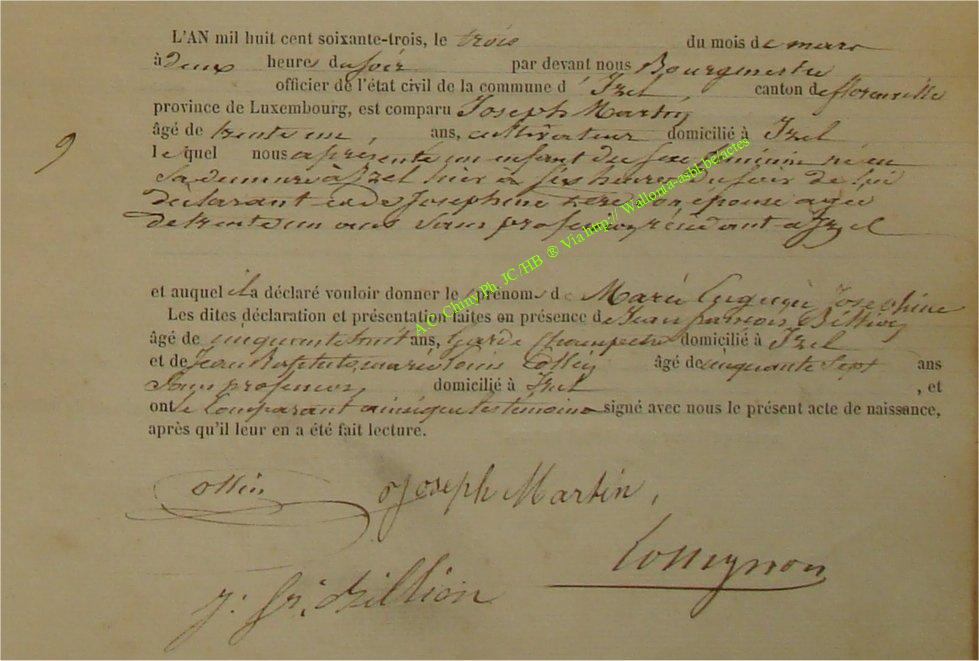 L'AN mil huit cent soixante-trois, le trois du mois de mars
à deux heures du soir par devant nous Bourgmestre
officier de l'état civil de la commune d' Izel, canton de florenville
province de Luxembourg, est comparu Joseph Martin
âgé de trente un, ans, cultivateur domicilié à Izel
9
lequel nous a présenté un enfant du sexe féminin né en
sa demeure a Izel hier a six heures du soir de lui
déclarant et de Josephine son épouse agée
de trente un ans sans profession, résidant a Izel
et auquel il a déclaré vouloir donner le s prénom s de Marie Josephine
Les dites déclaration et présentation faites en présence de Jean françois
âgé de cinquante huit ans, Garde Champetre domicilié à Izel
et de Jean Baptiste marie louis Collin âgé de cinquante sept ans
Sans profession, domicilié à Izel, et
ont le Comparant ainsi que les témoins signé avec nous le présent acte de naissance,
après qu'il leur en a été fait lecture.
A.C. Chiny Ph. JC/HB ® Via http:// Wallonia-asbl.be/actes
Collin Joseph Martin,